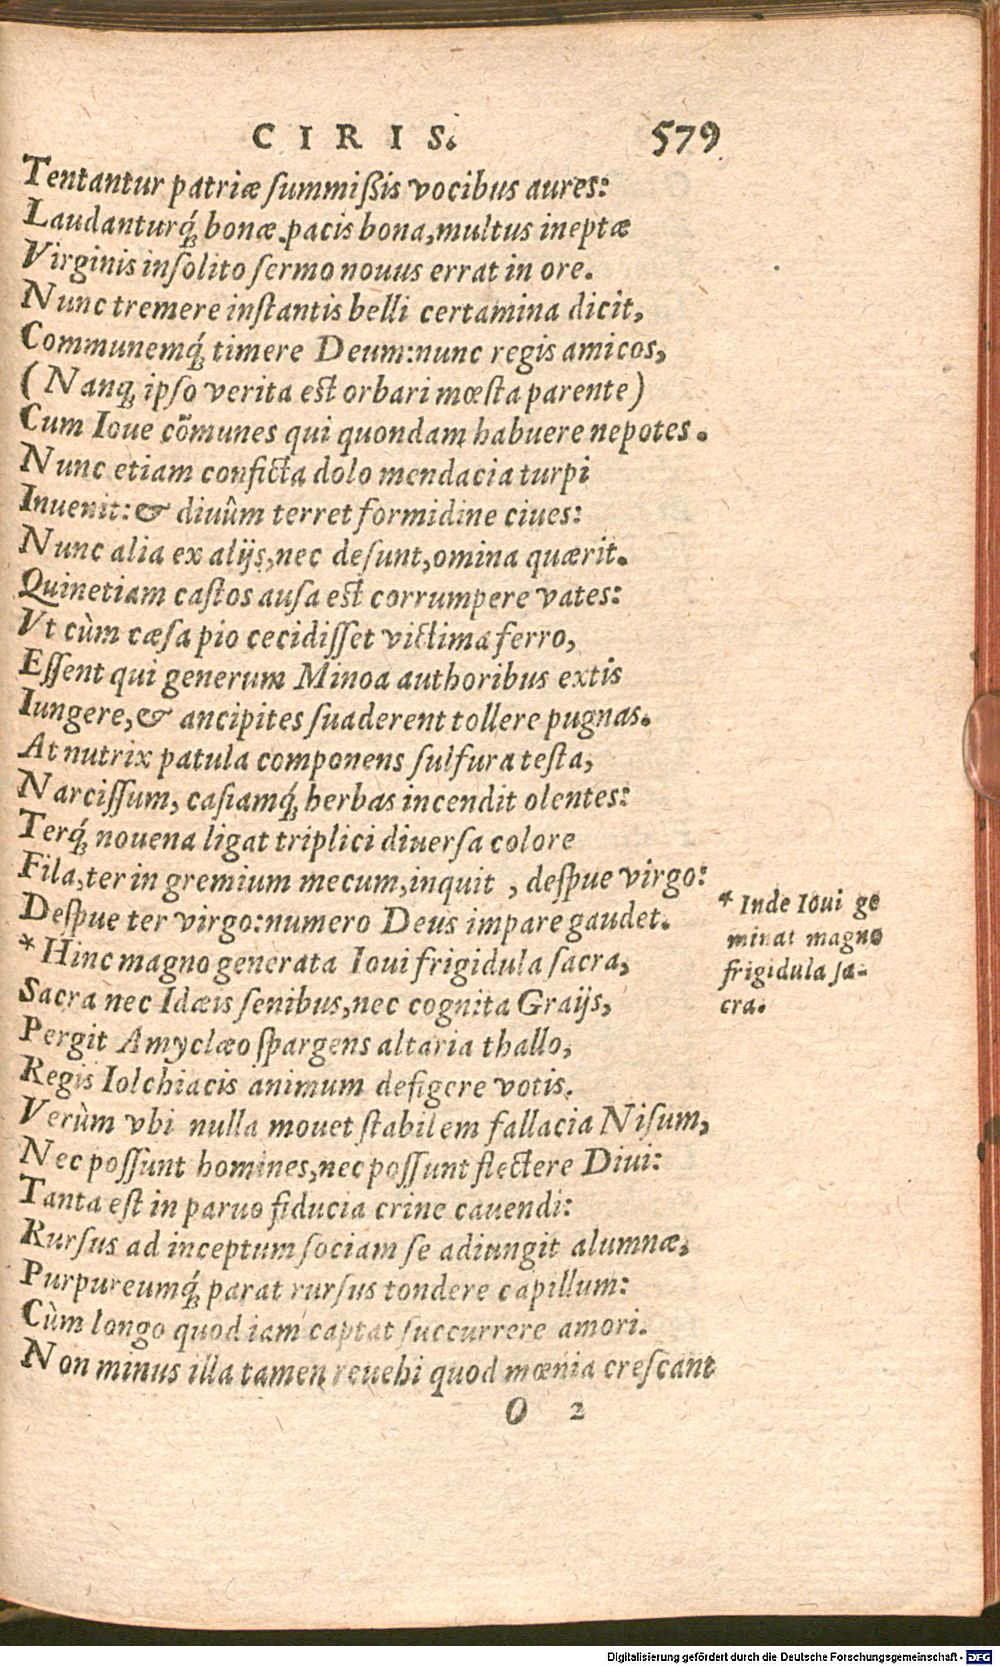 CIRIS. 579
Tentantur patriæ ſummißis vocibus aures:
Laudanturq́; bonæ pacis bona, multus ineptæ
Virginis inſolito ſermo nouus errat in ore.
Nunc tremere inſtantis belli certamina dicit,
Communemq́; timere Deum: nunc regis amicos,
(Nanq; ipſo verita est orbari mœſta parente)
Cum Ioue cõmunes qui quondam habuere nepotes.
Nunc etiam conficta dolo mendacia turpi
Inuenit: & diuûm terret formidine ciues:
Nunc alia ex alijs, nec deſunt, omina quærit.
Quinetiam caſtos auſa est corrumpere vates:
Vt cùm cæſa pio cecidiſſet victima ferro,
Eſſent qui generum Minoa authoribus extis
Iungere, & ancipites ſuaderent tollere pugnas.
At nutrix patula componens ſulfura teſta,
Narciſſum, caſiamq́; herbas incendit olentes:
Terq́; nouena ligat triplici diuerſa colore
Fila, ter in gremium mecum, inquit, deſpue virgo:
Deſpue ter virgo: numero Deus impare gaudet.
*Hinc magno generata Ioui frigidula ſacra,
Sacra nec Idæis ſenibus, nec cognita Graijs,
Pergit Amyclæo ſpargens altaria thallo,
Regis Iolchiacis animum defigere votis.
Verùm vbi nulla mouet ſtabilem fallacia Niſum,
Nec poſſunt homines, nec poſſunt flectere Diui:
Tanta eſt in paruo fiducia crine cauendi:
Rurſus ad inceptum ſociam ſe adiungit alumnæ,
Purpureumq́; parat rurſus tondere capillum:
Cùm longo quod iam captat ſuccurrere amori.
Non minus illa tamen reuehi quod mœnia creſcant
O 2
* Inde Ioui ge
minat magno
frigidula ſa-
cra.
Digitalisierung gefördert durch die Deutsche Forschungsgemeinschaft - DFG